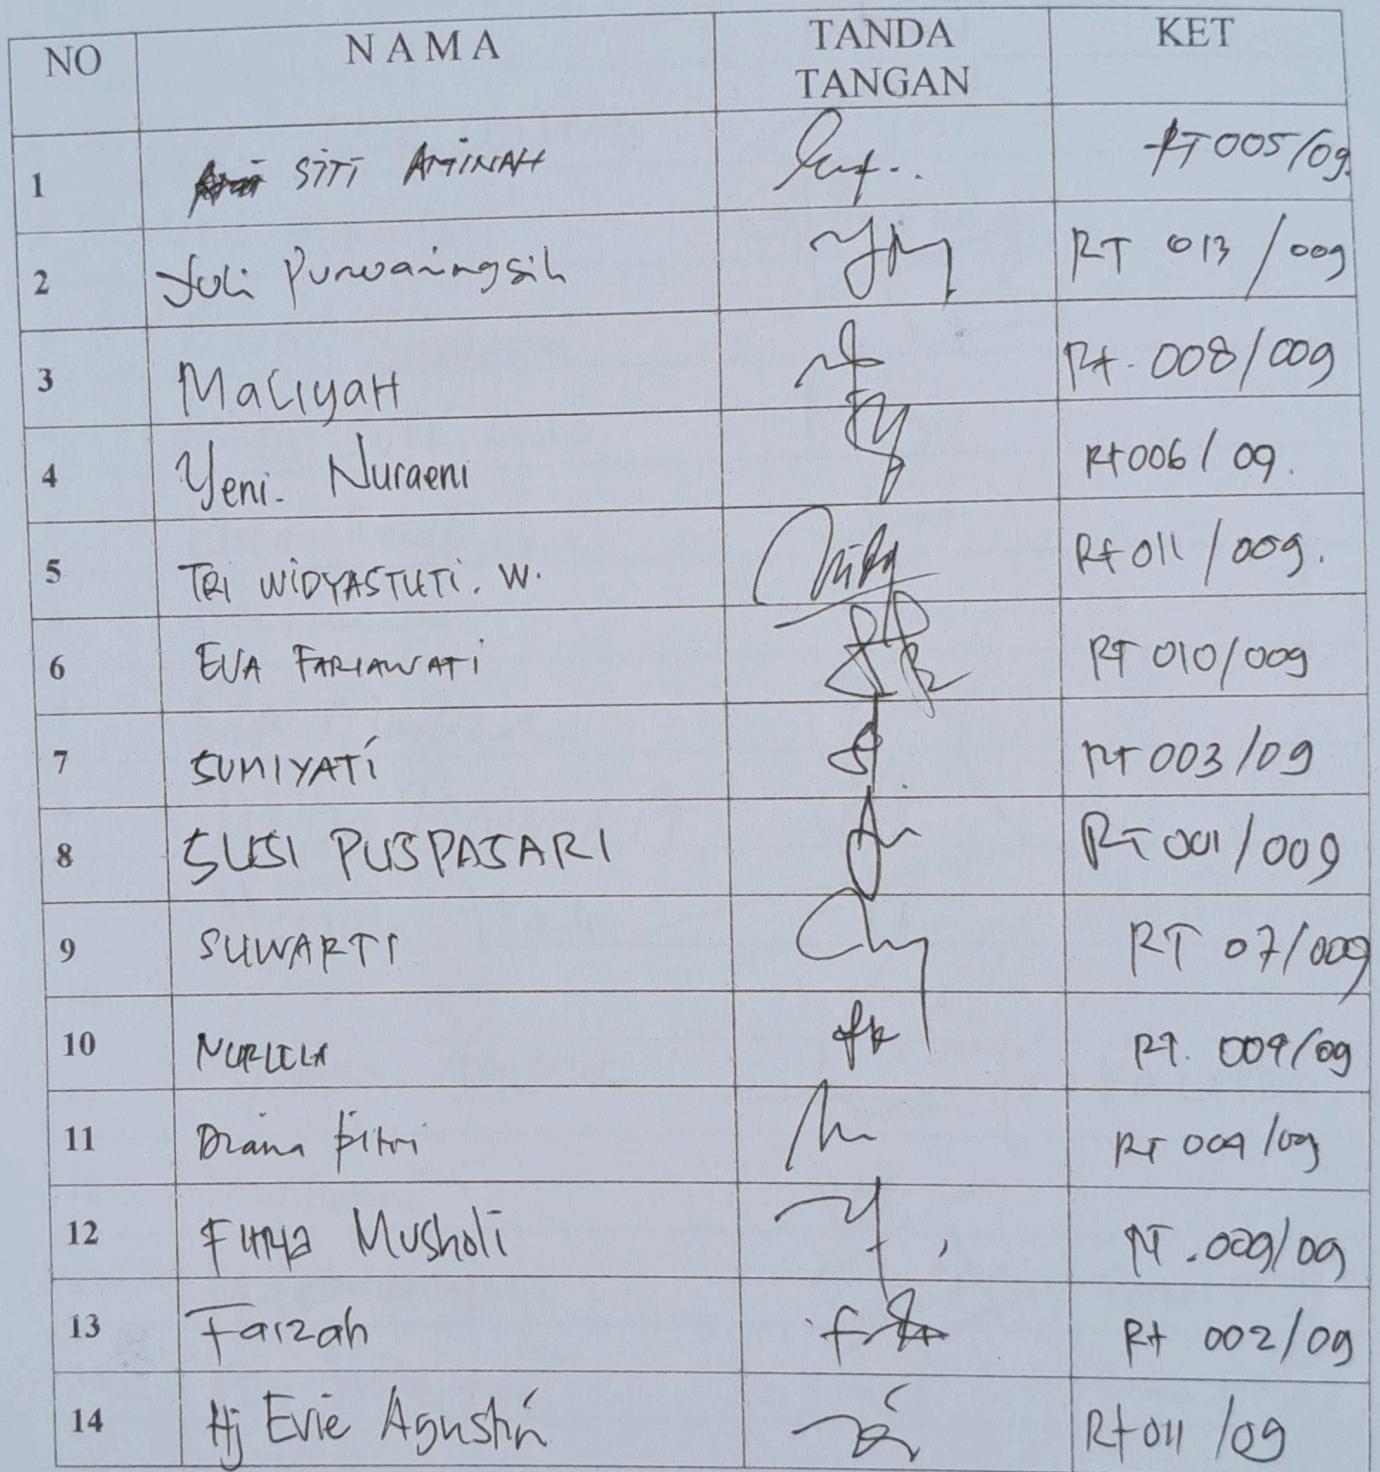 NO NAMA TANDA TANGAN KET
1 SITI AMINAH RT 005/09
2 Yuli Purwaningsih RT 013 / 009
3 MaliyaH Rt. 008/009
4 Yeni. Nuraeni Rt 006 / 09.
5 TRI WIDYASTUTI. W. Rt 011 / 009.
6 EVA FARIAWATI RT 010/009
7 SUMIYATI RT 003 /09
8 SUSI PUSPASARI RT 001/009
9 SUWARTI RT 07/009
10 NURLELA RT. 009/09
11 Diana Fitri RT 004 /09
12 Musholi RT .009/09
13 Faizah Rt 002/09
14 Hj Evie Agustin Rt 011 /09